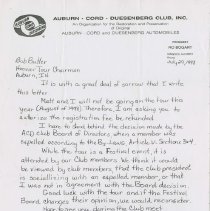 AUBURN - CORD - DUESENBERG CLUB, INC.
An Organization for the Restoration and Preservation
of Original
AUBURN - CORD and DUESENBERG AUTOMOBILES
PRESIDENT
RO BOGART
July 29, 1998
Bob Butler
Hoosier Tour Chairman
Auburn, IN
It is with a great deal of sorrow that I write
this letter
Matt and I will not be going on the tour this
year (August of 1998). Therefore I am asking you to
authorize the registration fee be refunded.
I have to stand behind the decision made by the
ACD Club Board of Directors when a member was
expelled according to the By-Laws Article V Section 3+4
While the tour is a Festival event, it is
attended by our Club members. We think it would
be viewed by club members that the club president
is socializing with an expelled member, or that
I was not in agreement with the Board decision
Good luck with the tour and if the Festival
Board changes their opinion, we would reconsider
Hope to see you during the Club meet